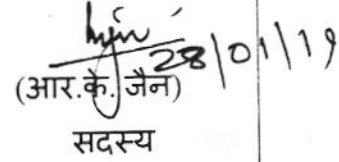 28/01/19
(आर.के. जैन)
सदस्य